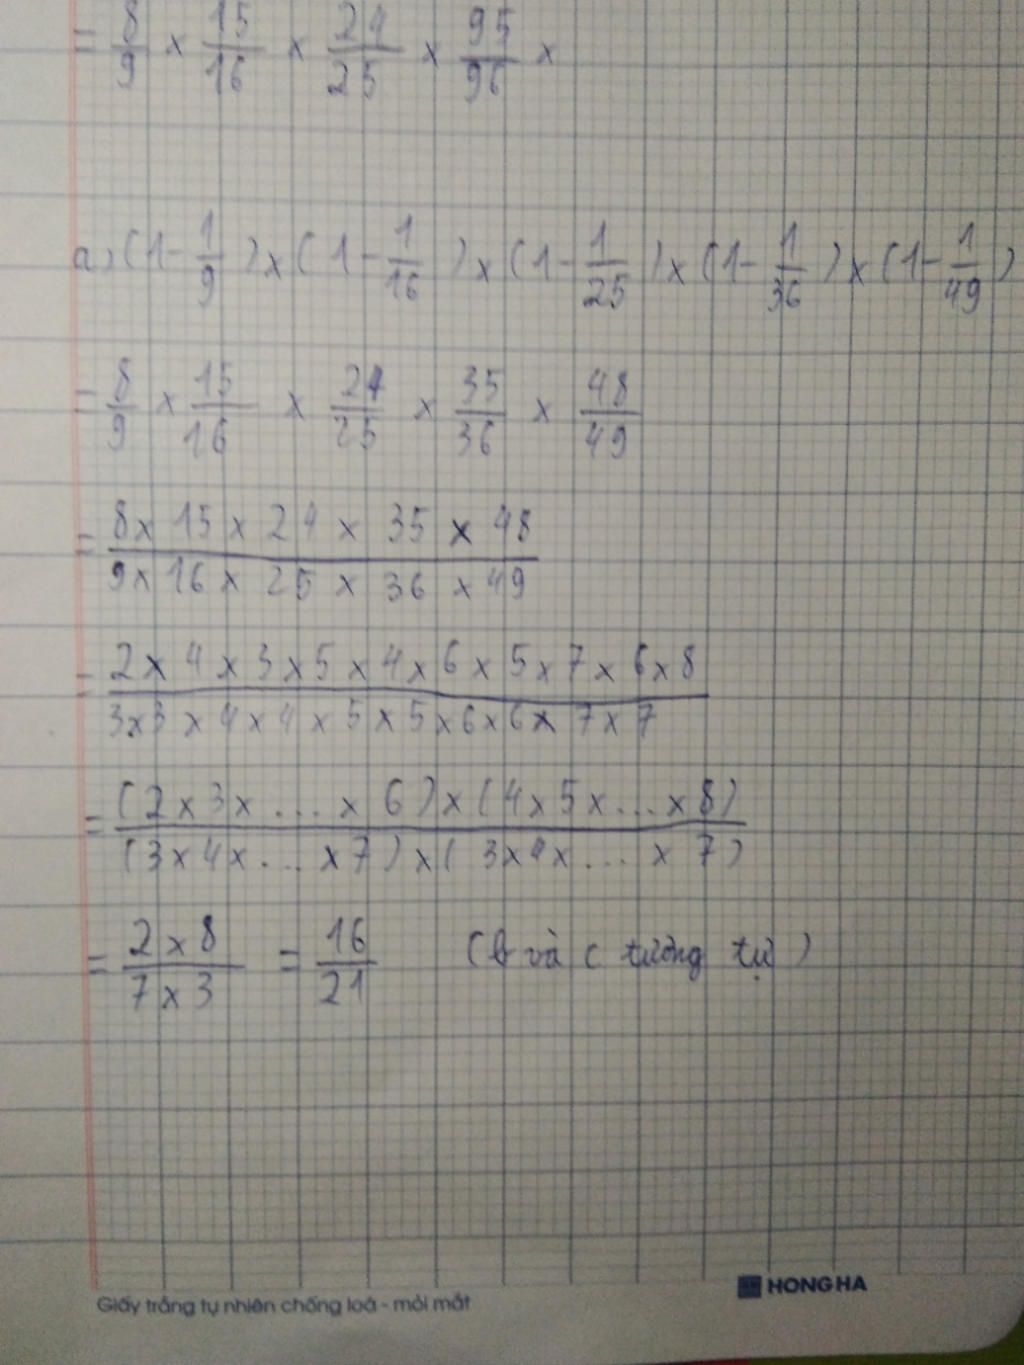 = 8/9 × 15/16 × 24/25 × 95/96 ×
a) (1 - 1/9) × (1 - 1/16) × (1 - 1/25) × (1 - 1/36) × (1 - 1/49)
= 8/9 × 15/16 × 24/25 × 35/36 × 48/49
= (8 × 15 × 24 × 35 × 48)/(9 × 16 × 25 × 36 × 49)
= (2 × 4 × 3 × 5 × 4 × 6 × 5 × 7 × 6 × 8)/(3 × 3 × 4 × 4 × 5 × 5 × 6 × 6 × 7 × 7)
= ((2 × 3 × .... × 6) × (4 × 5 × ... × 8))/((3 × 4 × ... × 7) × (3 × 4 × .... × 7))
= (2 × 8)/(7 × 3) = 16/21 (b và c tương tự)
Giấy trắng tự nhiên chống loá - mỏi mắt
HONG HA